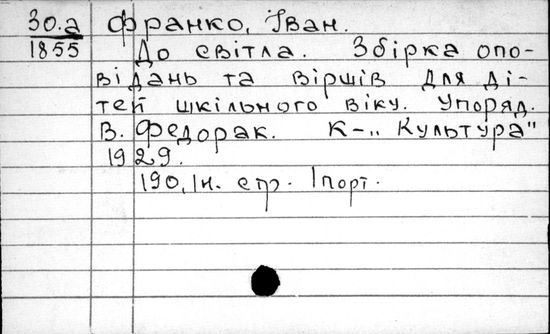 30.а Франко, Іван.
1855 До світла. Збірка опо-
відань та віршів для ді-
тей шкільного віку. Упоряд.
В. Федорак. К-„Культура"
1929.
190, Ін. стр. Iпорт.